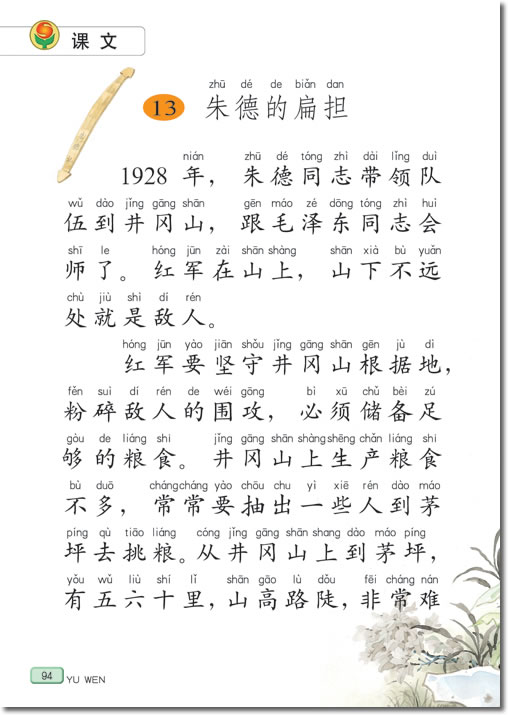 课文
zhū dé de biǎn dan
13 朱德的扁担
nián zhū dé tóng zhì dài lǐng duì
1928 年，朱德同志带领队
wǔ dào jǐng gāng shān gēn máo zé dōng tóng zhì huì
伍到井冈山，跟毛泽东同志会
shī le hóng jūn zài shān shàng shān xià bù yuǎn
师了。红军在山上，山下不远
chù jiù shì dí rén
处就是敌人。
hóng jūn yào jiān shǒu jǐng gāng shān gēn jù dì
红军要坚守井冈山根据地，
fěn suì dí rén de wéi gōng bì xū chǔ bèi zú
粉碎敌人的围攻，必须储备足
gòu de liáng shi jǐng gāng shān shàng shēng chǎn liáng shi
够的粮食。井冈山上生产粮食
bù duō cháng cháng yào chōu chu yì xiē rén dào máo
不多，常常要抽出一些人到茅
píng qù tiāo liáng cóng jǐng gāng shān shang dào máo píng
坪去挑粮。从井冈山上到茅坪，
yǒu wǔ liù shí lǐ shān gāo lù dǒu fēi cháng nán
有五六十里，山高路陡，非常难
94 YU WEN